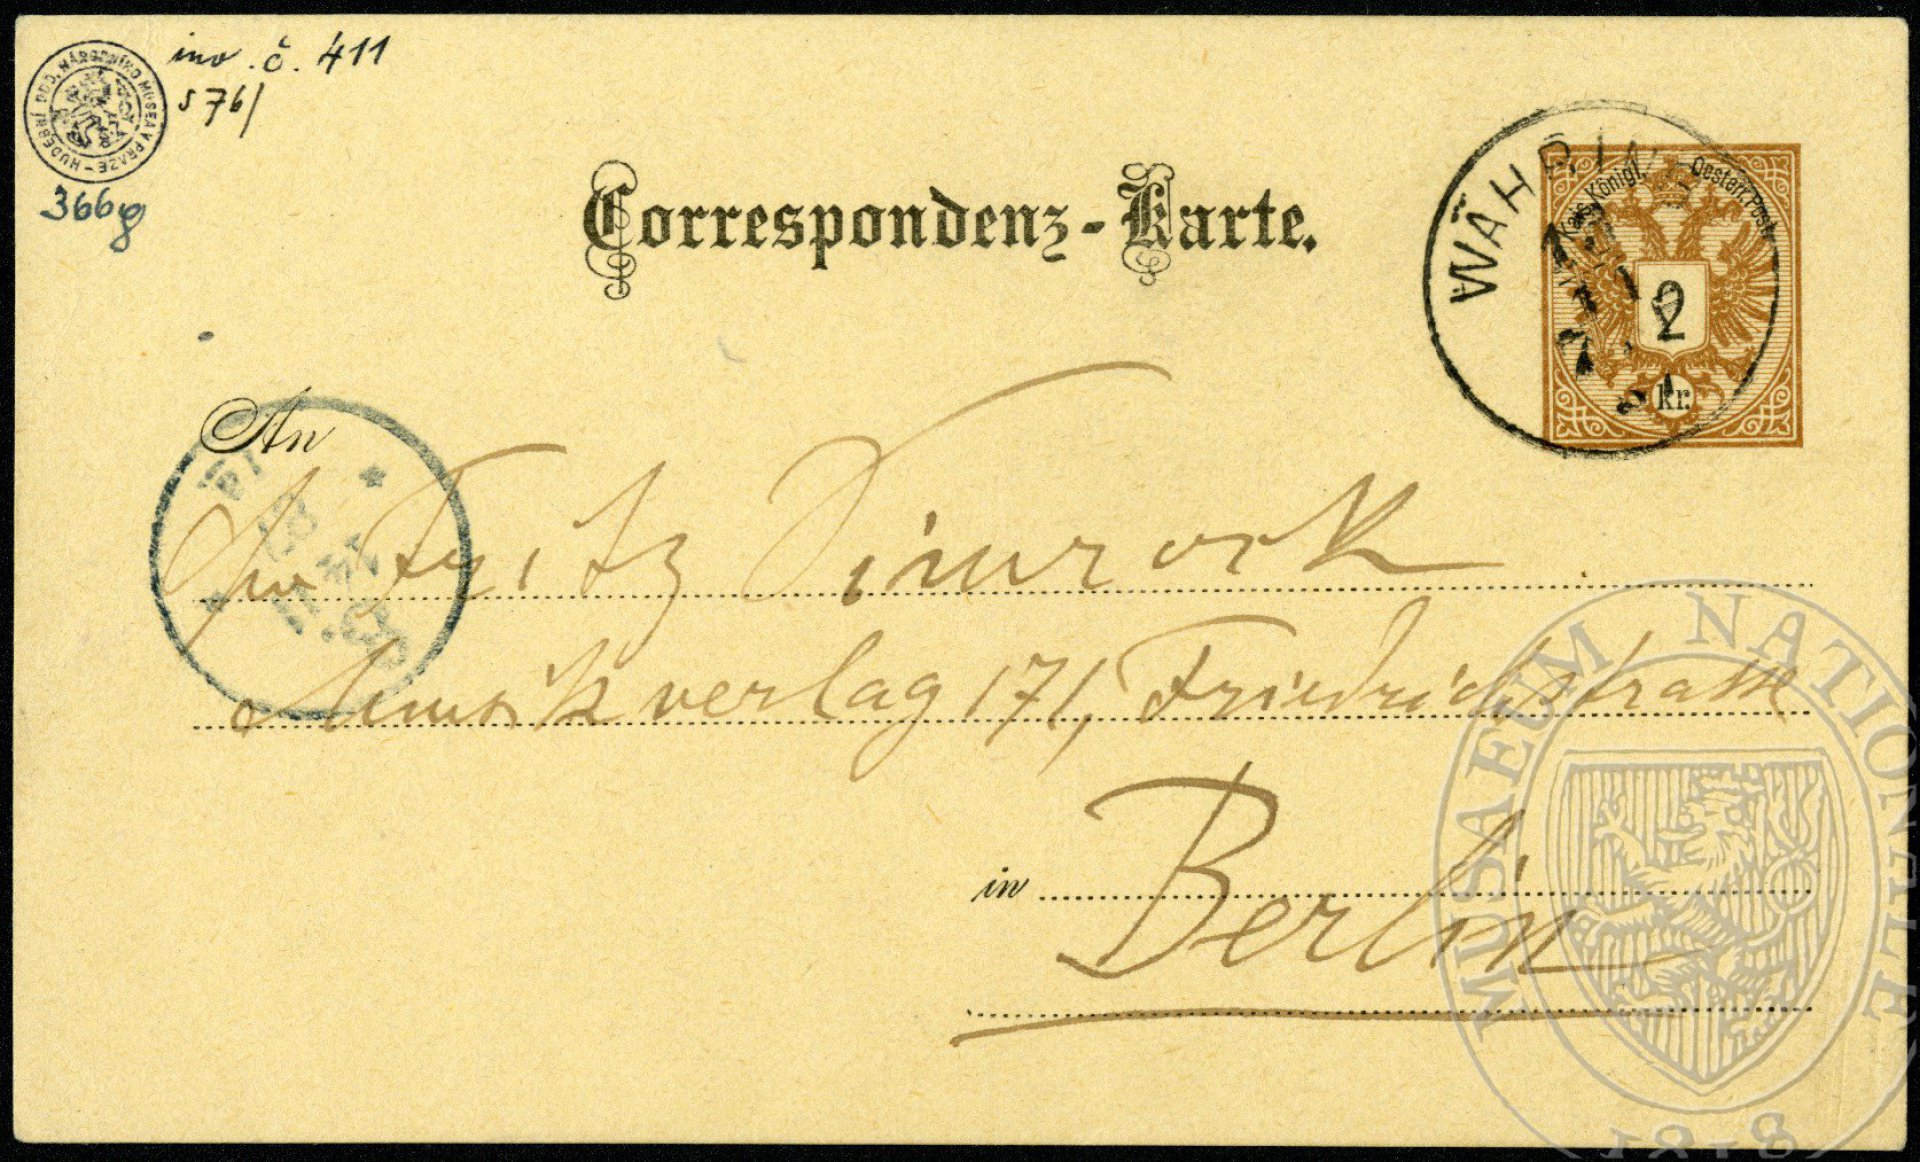 inv. č. 411
S 76/
HUDEBNÍ ODD. NÁRODNÍHO MUSEA V PRAZE
366g
Correspondenz-Karte.
WÄHRIN
Kais. Königl. Oesterr. Post
2
kr.
An
Fritz Simrock
Musikverlag 171, Friedrichstrasse
in Berlin
MUSAEUM NATIONALE
1818